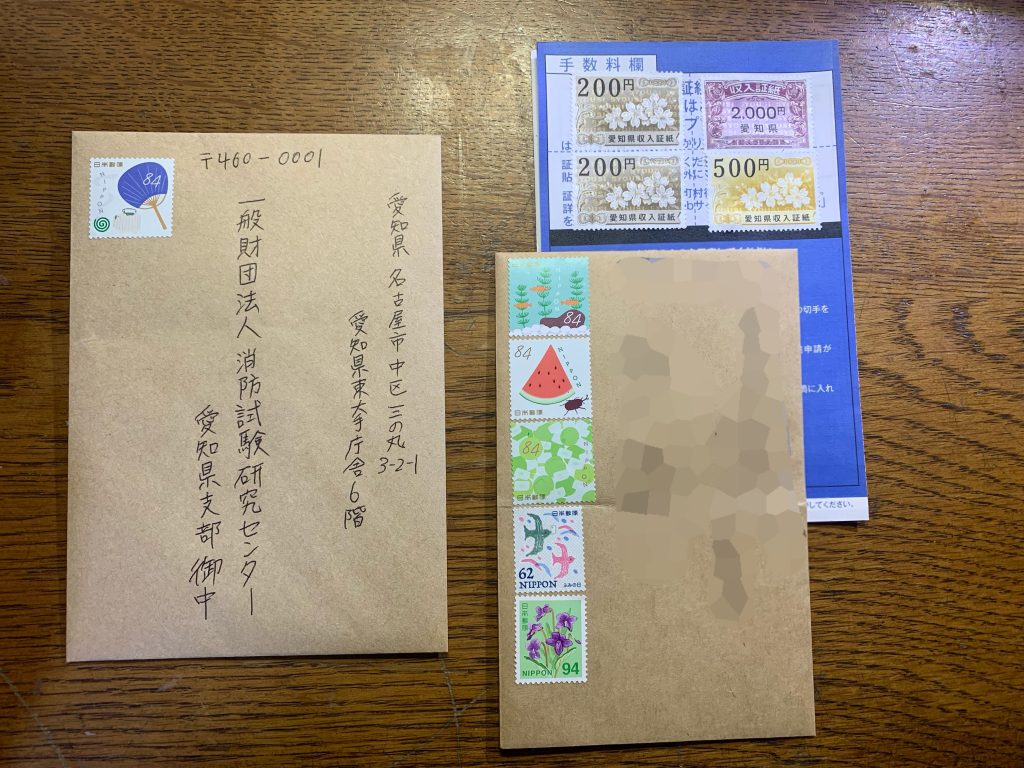 日本郵便
84
NIPPON
〒460-0001
愛知県 名古屋市中区三の丸
3-2-1
愛知県東大手庁舎6階
一般財団法人 消防試験研究センター
愛知県支部 御中
手数料欄
200円
愛知県収入証紙
収入証紙
2,000円
愛知県
200円
愛知県収入証紙
500円
愛知県収入証紙
の切手を
申請が
に入れ
してください。
84
84
NIPPON
日本郵便
84
日本郵便
日本郵便
62
NIPPON
ふみの日
日本郵便
NIPPON
94